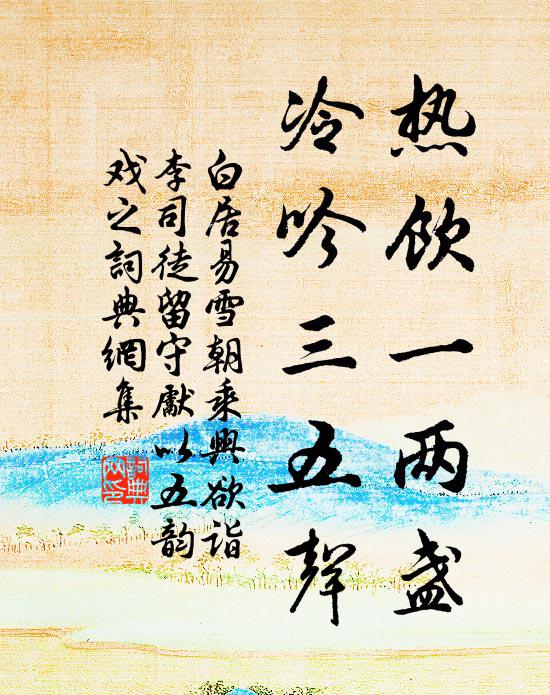 热饮一两盏
冷吟三五声
白居易雪朝乘興欲诣
李司徒留守獻以五韵
戏之詞典網集